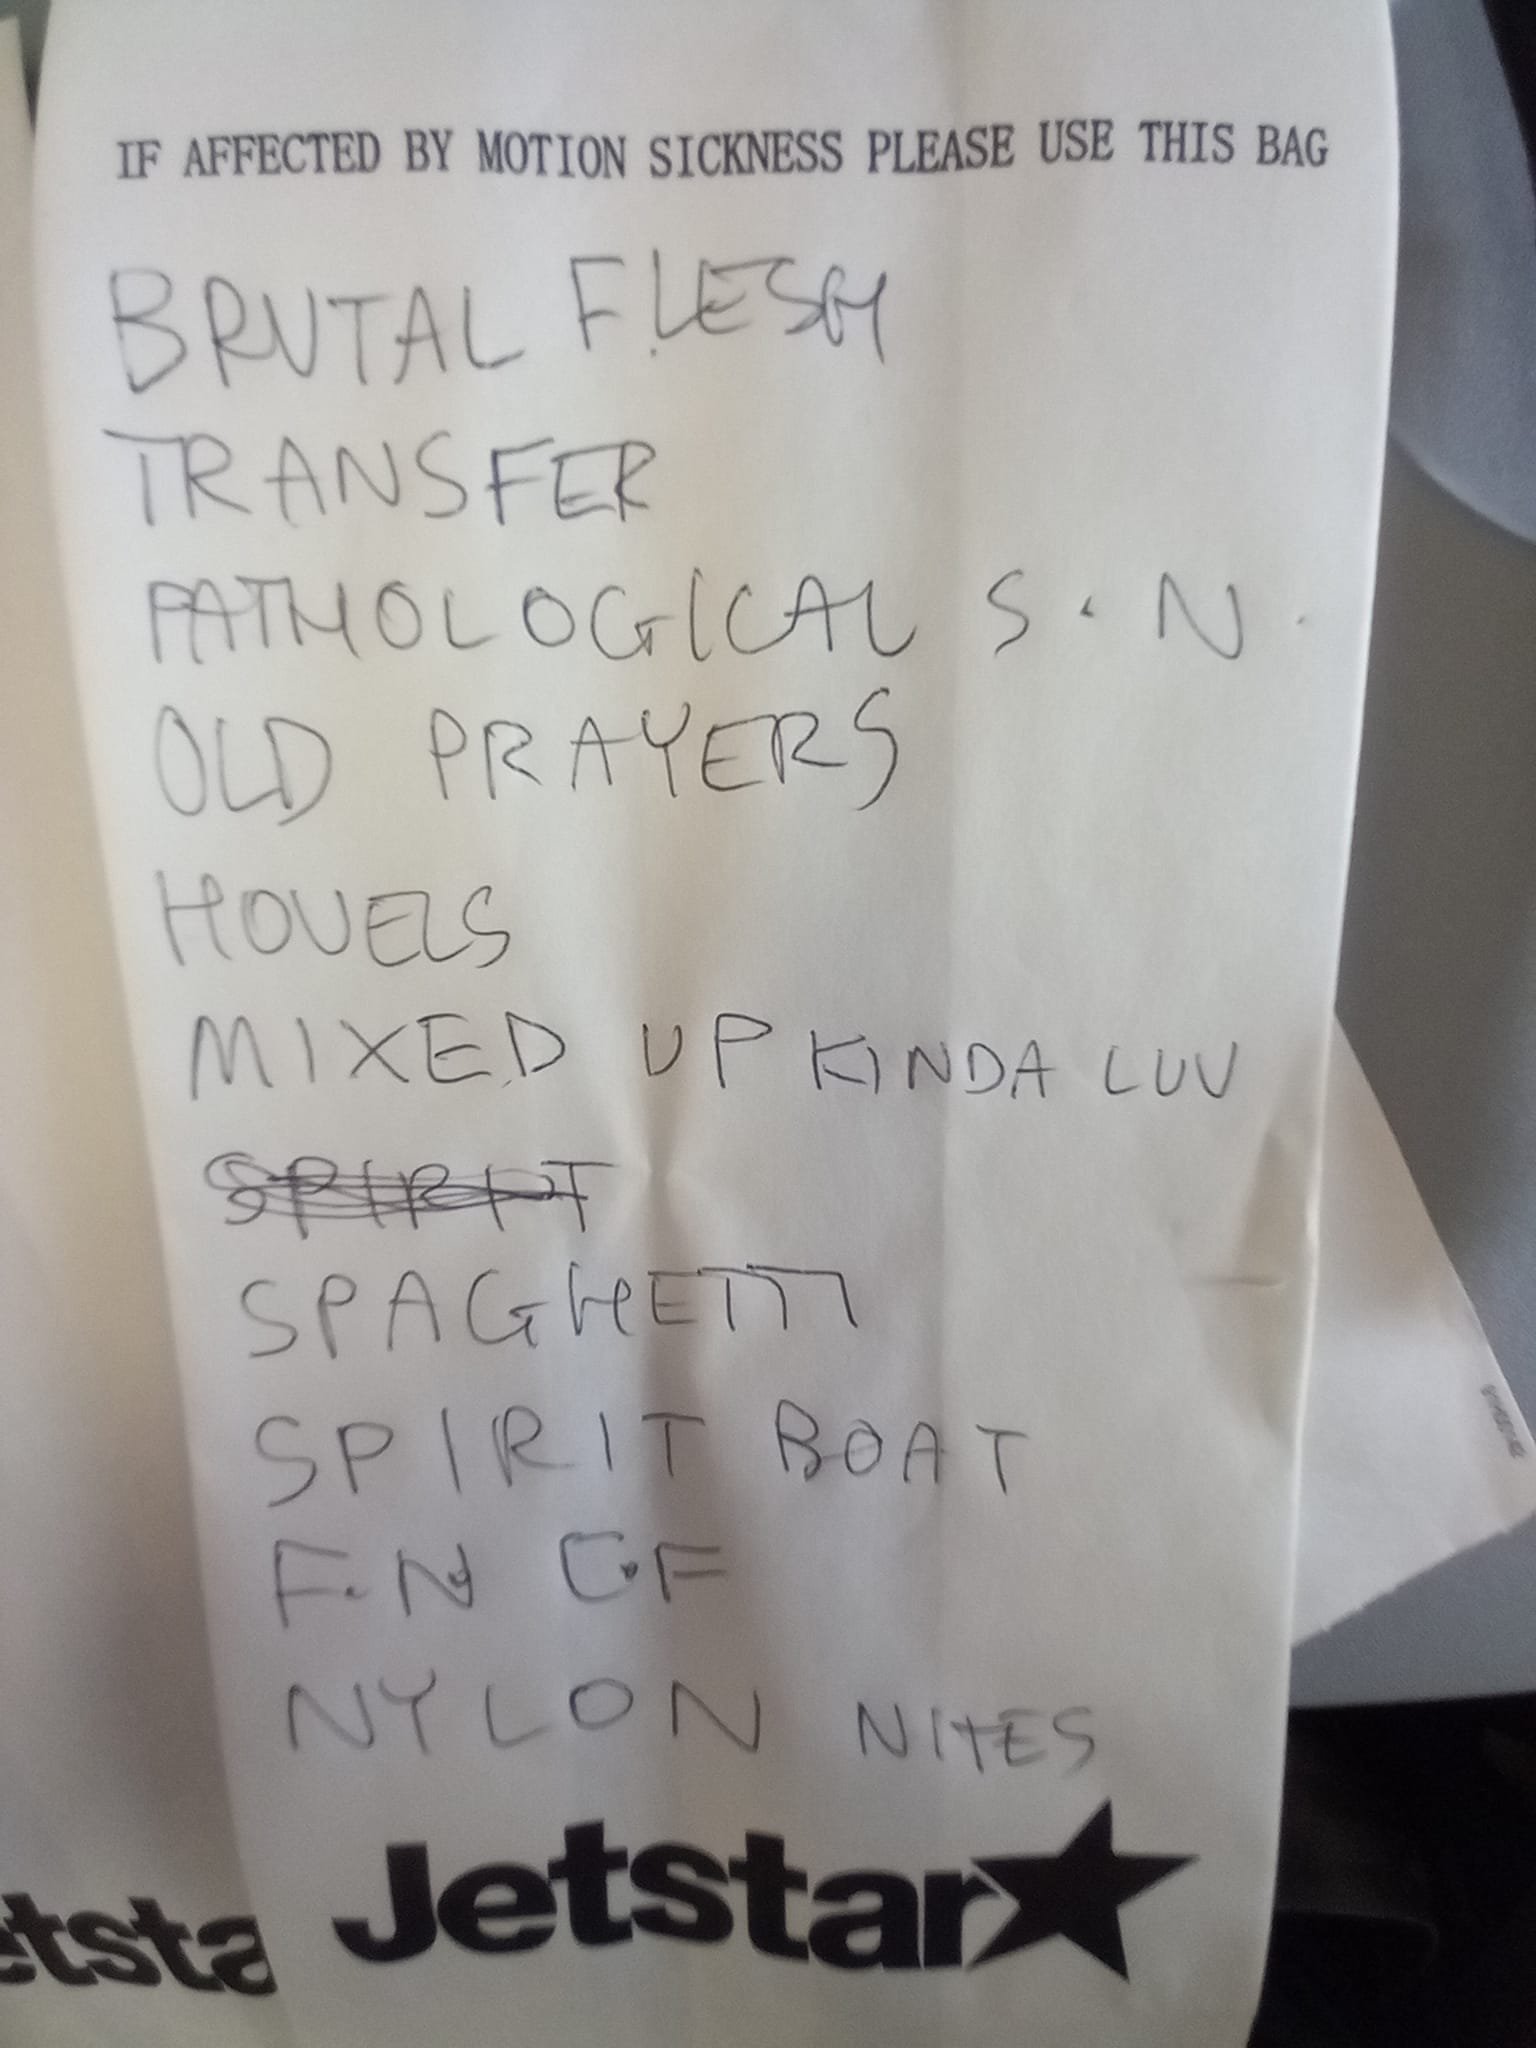 IF AFFECTED BY MOTION SICKNESS PLEASE USE THIS BAG
BRUTAL FLESH
TRANSFER
PATHOLOGICAL S.N.
OLD PRAYERS
HOVELS
MIXED UP KINDA LUV
SPIRIT
SPAGHETTI
SPIRIT BOAT
F.N G.F
NYLON NITES
Jetstar
etsta